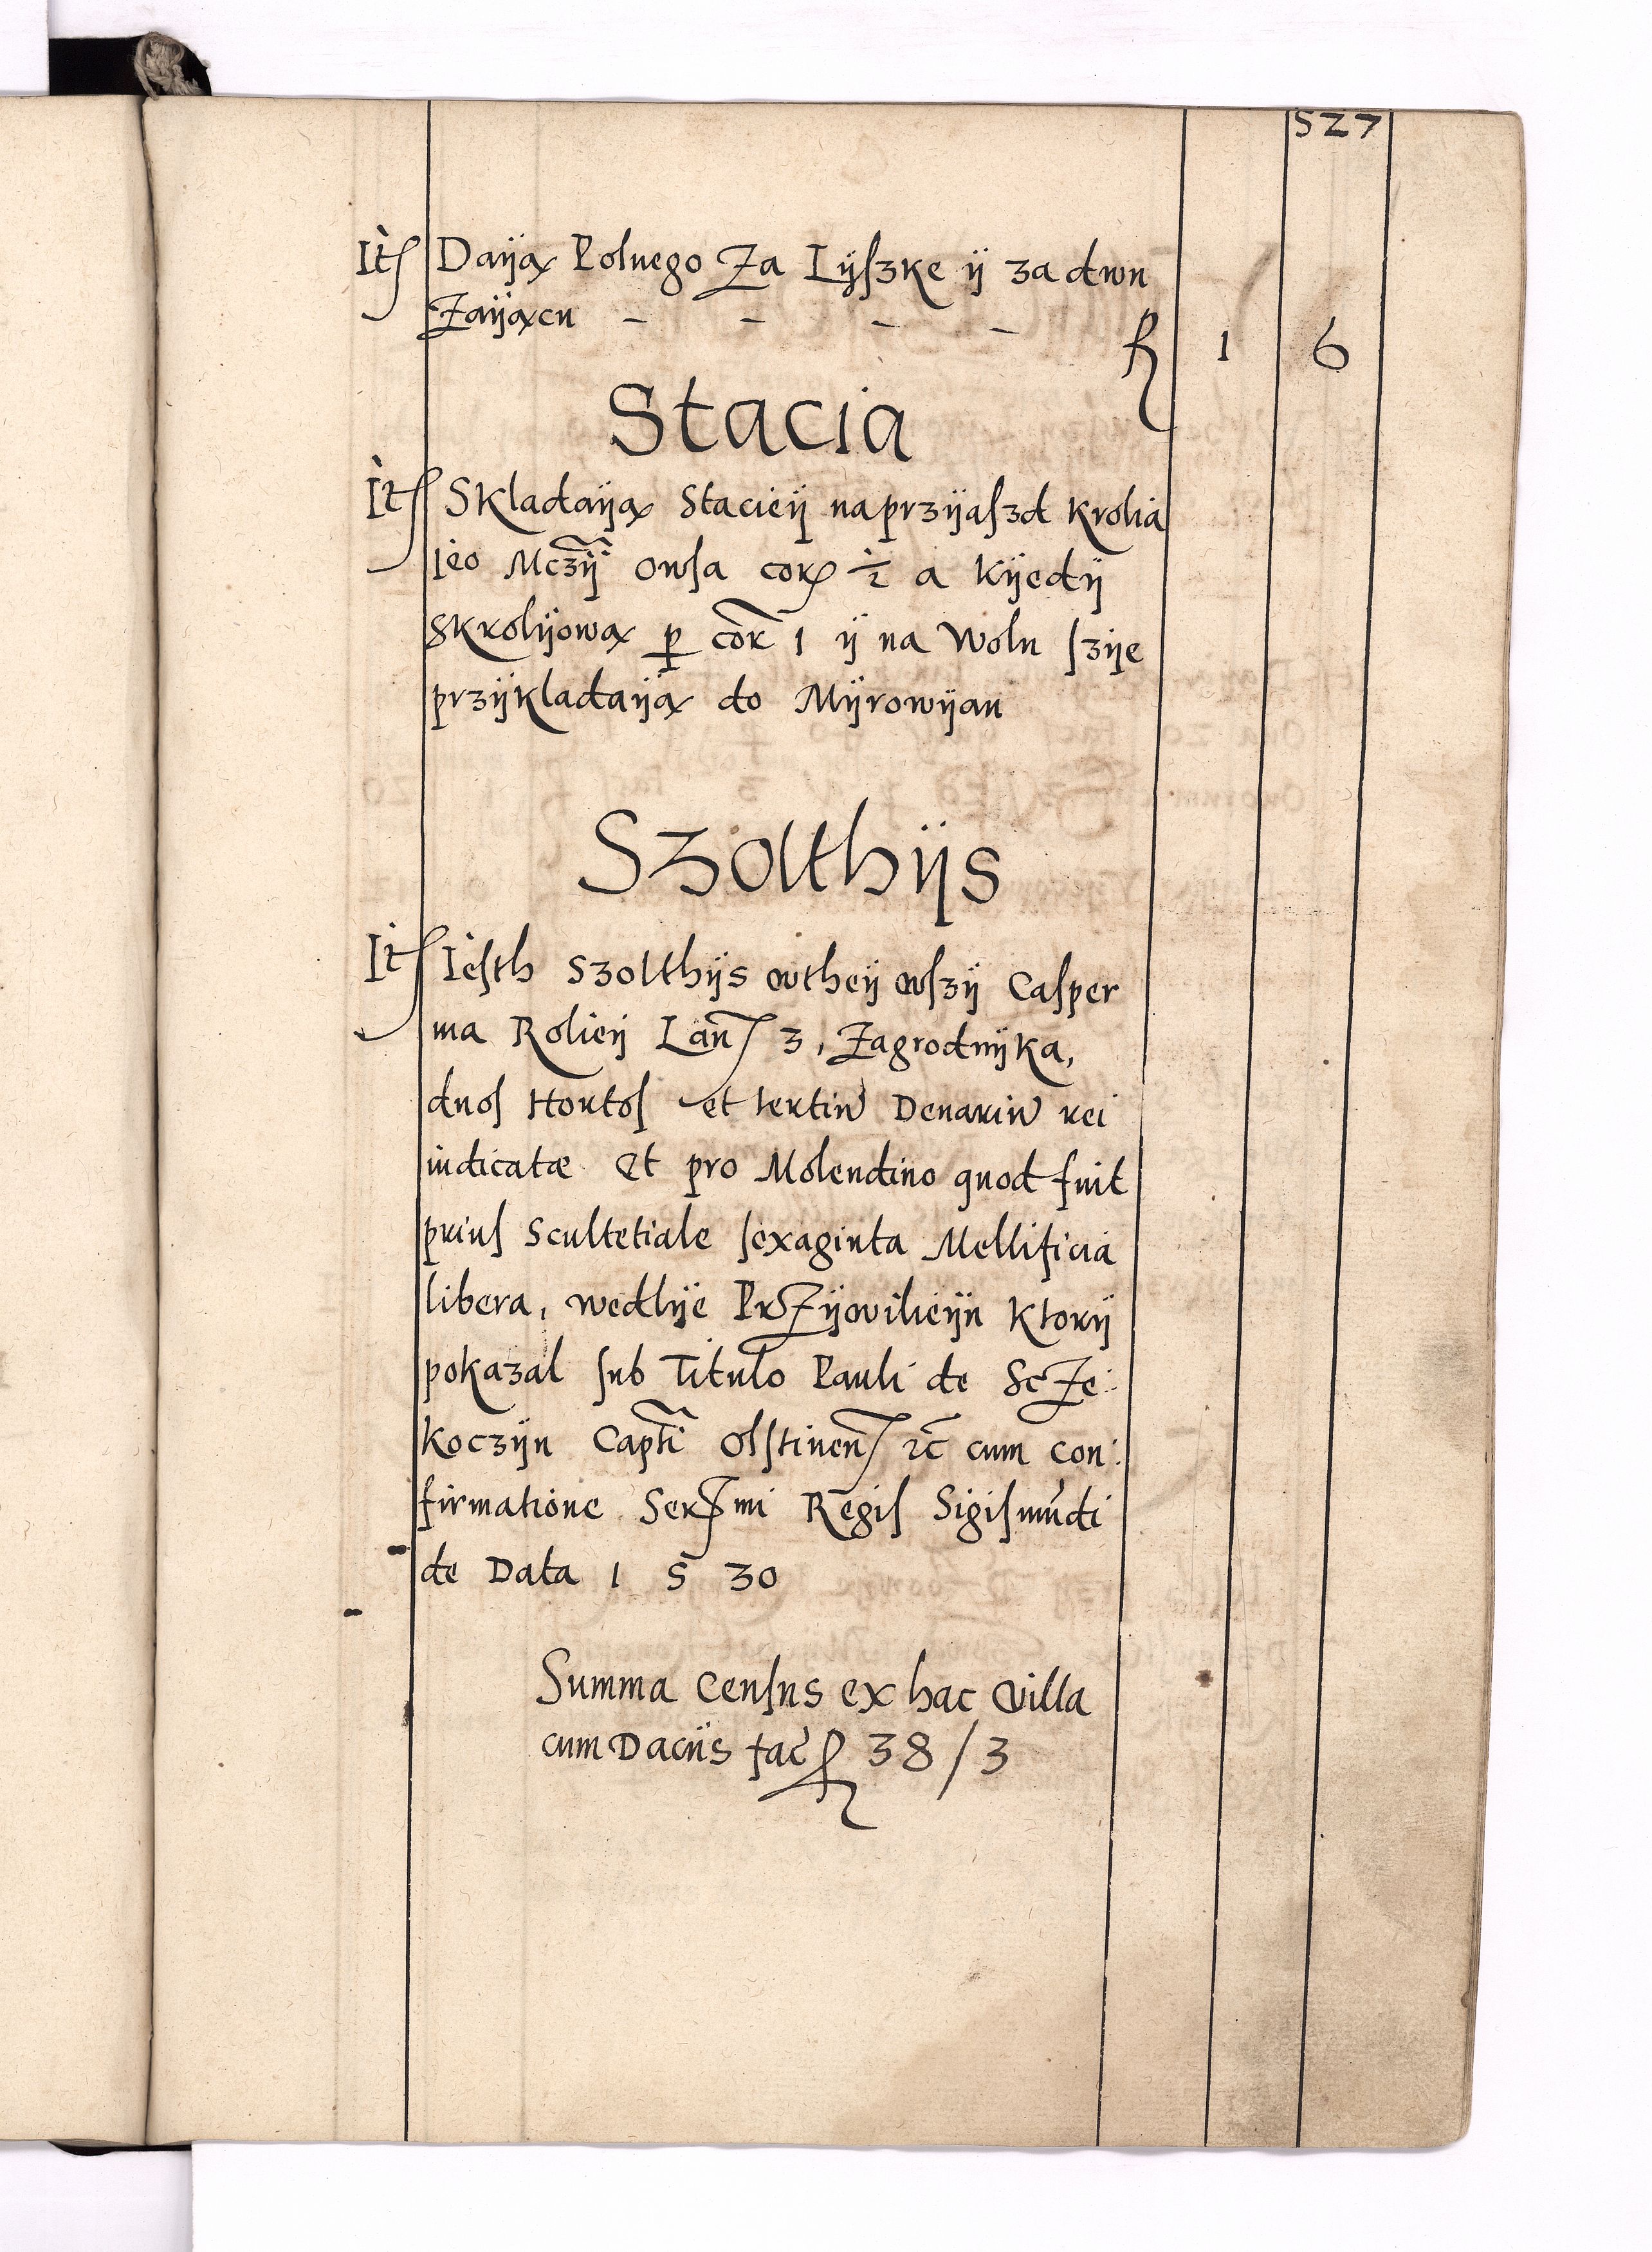 527
It Daÿą Polnego Za Lÿſzke ÿ za dwu
Zaÿącu - - - - f 1 6
Stacia
It Skladaÿą Stacieÿ na przÿaſzd Krolia
ieo Mczÿ Owſa cor ½ a Kÿedÿ
Skrolÿową p cor 1 ÿ na Wolu ſzÿe
przÿkladaÿą do Mÿrowÿan
Szolthÿs
It Ieſth Szolthÿs wtheÿ wſzÿ Caſper
ma Rolieÿ Lan 3, Zagrodnÿka,
duoſ Hortoſ et tertiu Denariu rei
iudicatæ Et pro Molendino quod fuit
priuſ Scultetiale ſexaginta Mellificia
libera, wedlÿe PrZÿvilieÿu Ktorÿ
pokazal ſub Titulo Pauli de ScZe:
koczÿn Capti Olſtinen ꝛc cum con:
firmatione Serſmi Regiſ Sigiſmudi
de Data 1 5 30
Summa Cenſus ex hac villa
cum Daciis fac f 38/3